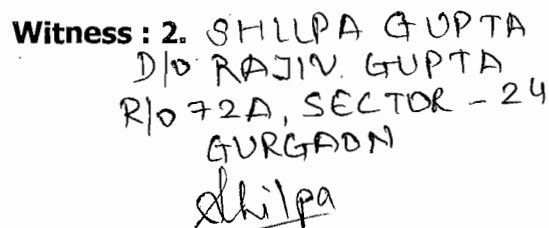 Witness : 2. SHILPA GUPTA
D/O RAJIV. GUPTA
R/O 72A, SECTOR - 24
GURGAON
Shilpa